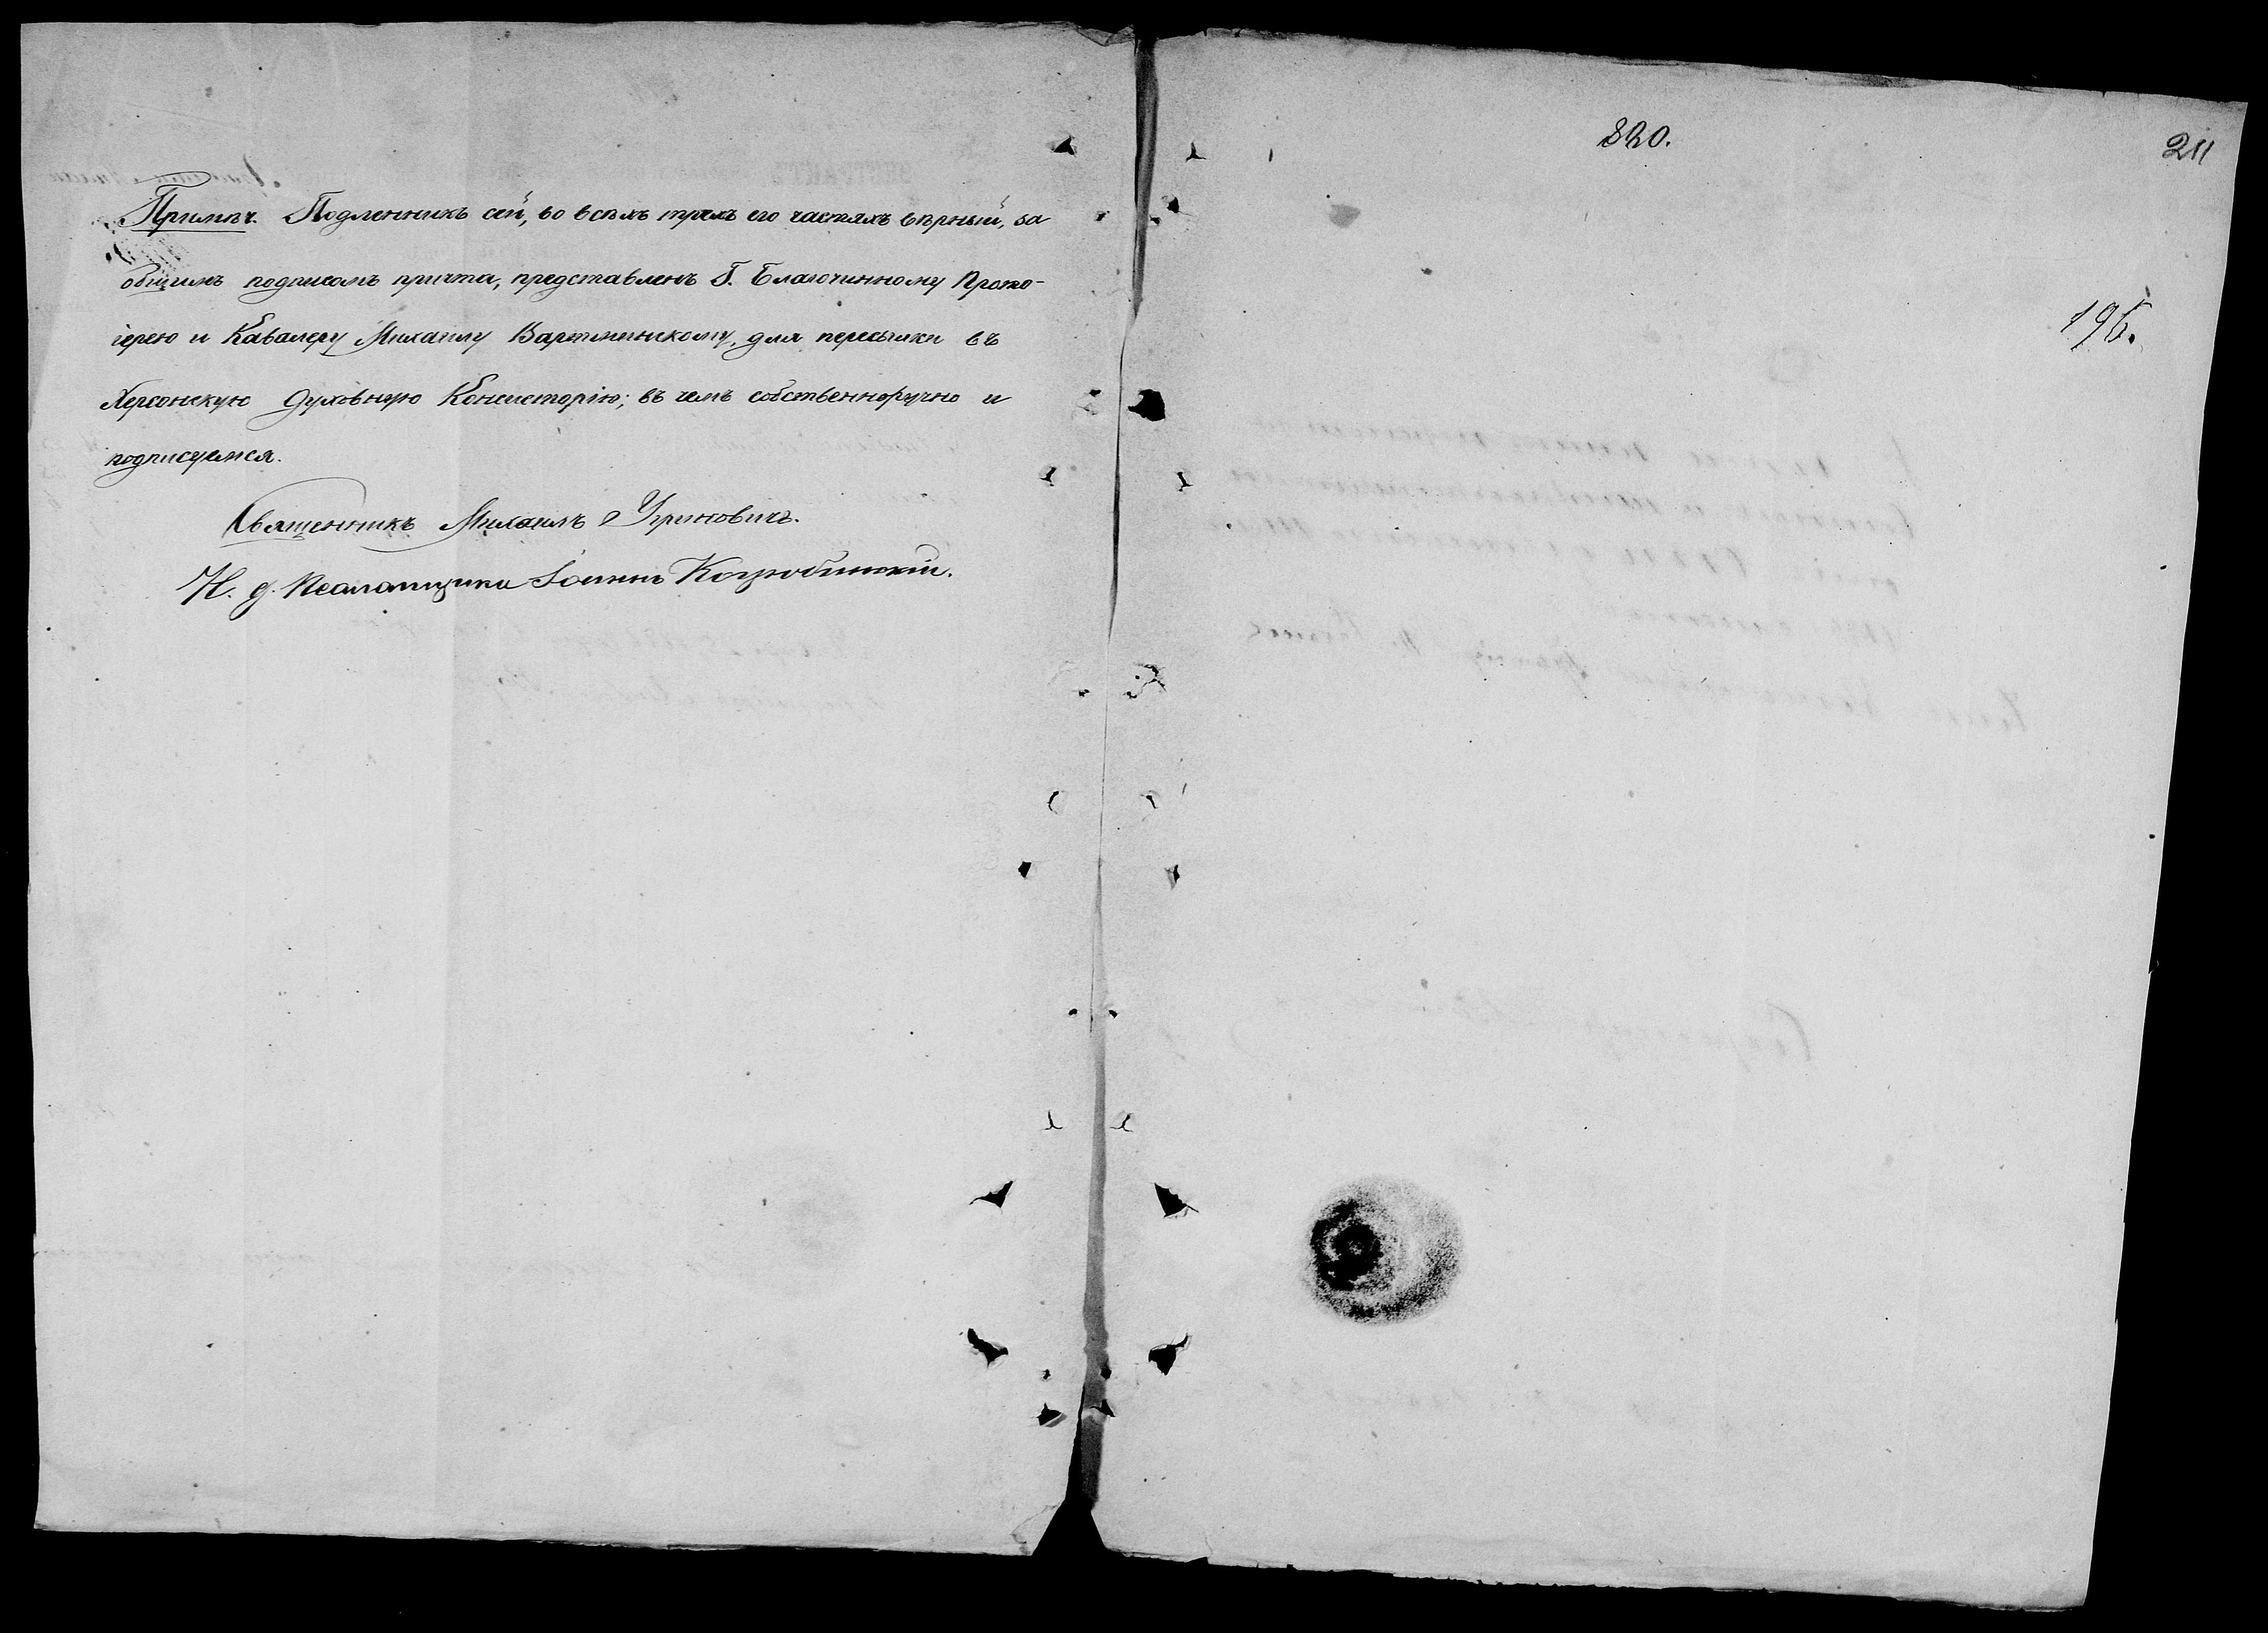 Примѣч. Подленникъ сей, во всѣхъ трехъ его частяхъ вѣрный, за
общимъ подписомъ причта, представленъ Г. Благочинному Прото-
іерею и Кавалеру Михаилу Вартминскому, для пересылки въ
Херсонскую Духовную Консисторію; въ чемъ собственноручно и
подписуемся.
Священникъ Михаилъ Уриновичъ.
И. д. Псаломщика Іоаннъ Коцюбинскій.
820.
211
195.